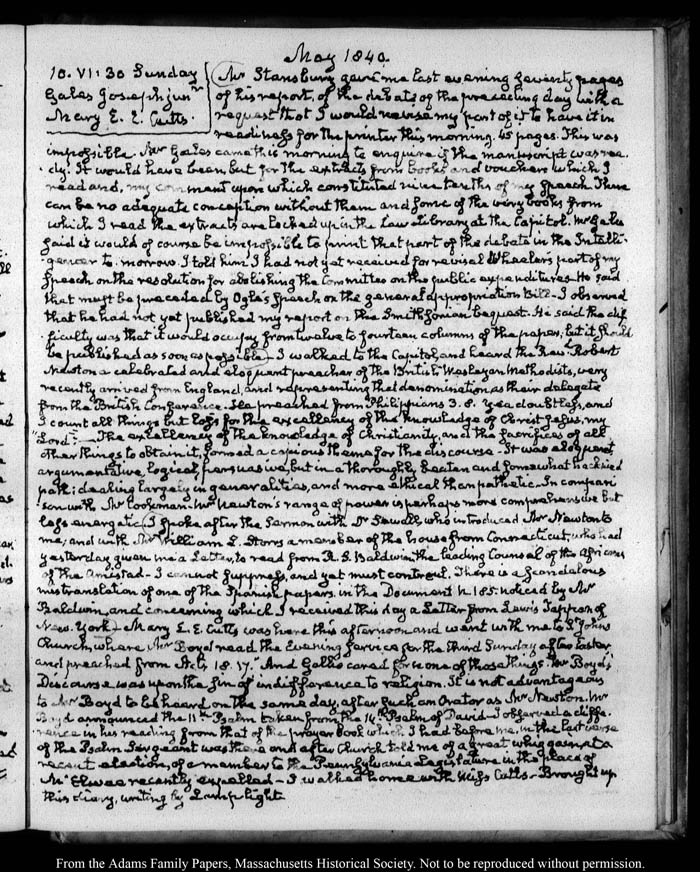 May 1840.
10. VI: 30 Sunday
Gales Joseph junr.
Mary E. E. Cutts.
Mr Stansbury gave me last evening seventy pages
of his report, of the debate of the preceding day with a
request that I would revise my part of it to have it in
readiness for the printer this morning. 45 pages. This was
impossible. Mr Gales came this morning to enquire if the manuscript was rea-
dy. It would have been but for the extracts from books and vouchers which I
read and, my comment upon which constituted nine tenths of my Speech There
can be no adequate conception without them and some of the very books from
which I read the extracts are locked up in the Law Library at the Capitol. Mr Gales
said it would of course be impossible to print that part of the debate in the Intelli-
gencer to-morrow. I told him I had not yet received for revisal Wheeler's part of my
Speech on the resolution for abolishing the Committees on the public expenditures. He said
that must be preceded by Ogle's Speech on the general appropriation Bill - I observed
that he had not yet published my report on the Smithsonian bequest. He said the dif-
ficulty was that it would occupy from twelve to fourteen columns of the paper, but it should
be published as soon as possible - I walked to the Capitol, and heard the Revd. Robert
Newton a celebrated and eloquent preacher of the British Wesleyan Methodists, very
recently arrived from England, and representing that denomination as their delegate
from the British Conference. He preached from Philippians 3. 8. Yea doubtless, and
I count all things but loss for the excellency of the knowledge of Christ Jesus, my
Lord" - The excellency of the knowledge of Christianity, and the sacrifices of all
other things to obtain it, formed a copious theme for the discourse - It was eloquent,
argumentative, logical, persuasive, but in a thoroughly beaten and somewhat hackneied
path: dealing largely in generalities, and more ethical than pathetic - In compari-
son with Mr Cookman - Mr Newton's range of power is perhaps more comprehensive but
less energetic. I spoke after the Sermon with Dr Sewall, who introduced Mr Newton to
me; and with Mr William L. Storrs a member of the house from Connecticut, who had
yesterday given me a Letter, to read from R. S. Baldwin, the leading Counsel of the Africans
of the Amistad - I cannot suppress, and yet must controul. There is a scandalous
mistranslation of one of the Spanish papers, in the Document N. 185. noticed by Mr
Baldwin, and concerning which I received this day a Letter from Lewis Tappan of
New York - Mary E. E. Cutts was here this afternoon and went with me to St Johns
Church, where Mr Boyd read the Evening service for the third Sunday after Easter
and preached from Acts 18. 17. "And Gallio cared for none of those things." Mr Boyd's
Discourse was upon the sin of indifference to religion. It is not advantageous
to Mr Boyd to be heard on the same day, after such an Orator as Mr Newton. Mr
Boyd announced the 11th Psalm taken from the 14th Psalm of David - I observed a diffe-
rence in his reading from that of the prayer book which I had before me, in the last verse
of the Psalm Sergeant was there and after Church told me of a great whig gain at a
recent election, of a member to the Pennsylvania Legislature in the place of
Mr Elwee recently expelled - I walked home with Miss Cutts - Brought up
this diary, writing by Lamp light.
From the Adams Family Papers, Massachusetts Historical Society. Not to be reproduced without permission.